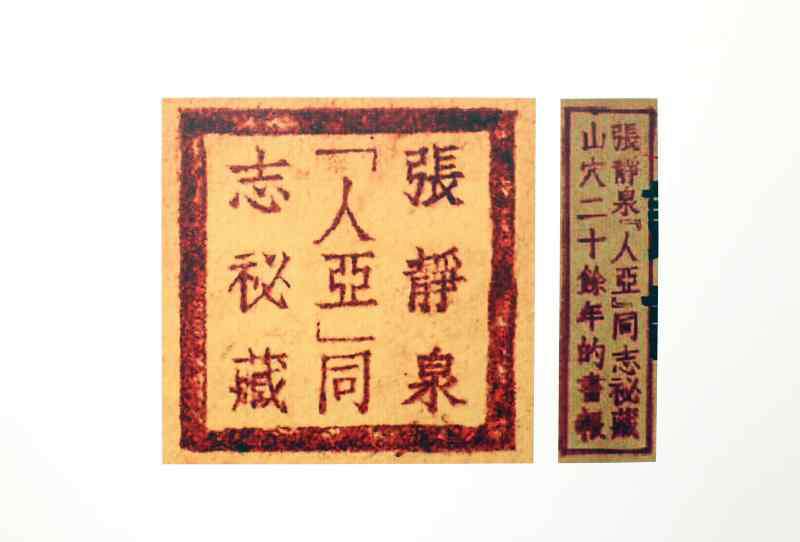 張靜泉
「人亞」同
志祕藏
張靜泉「人亞」同志祕藏
山穴二十餘年的書報